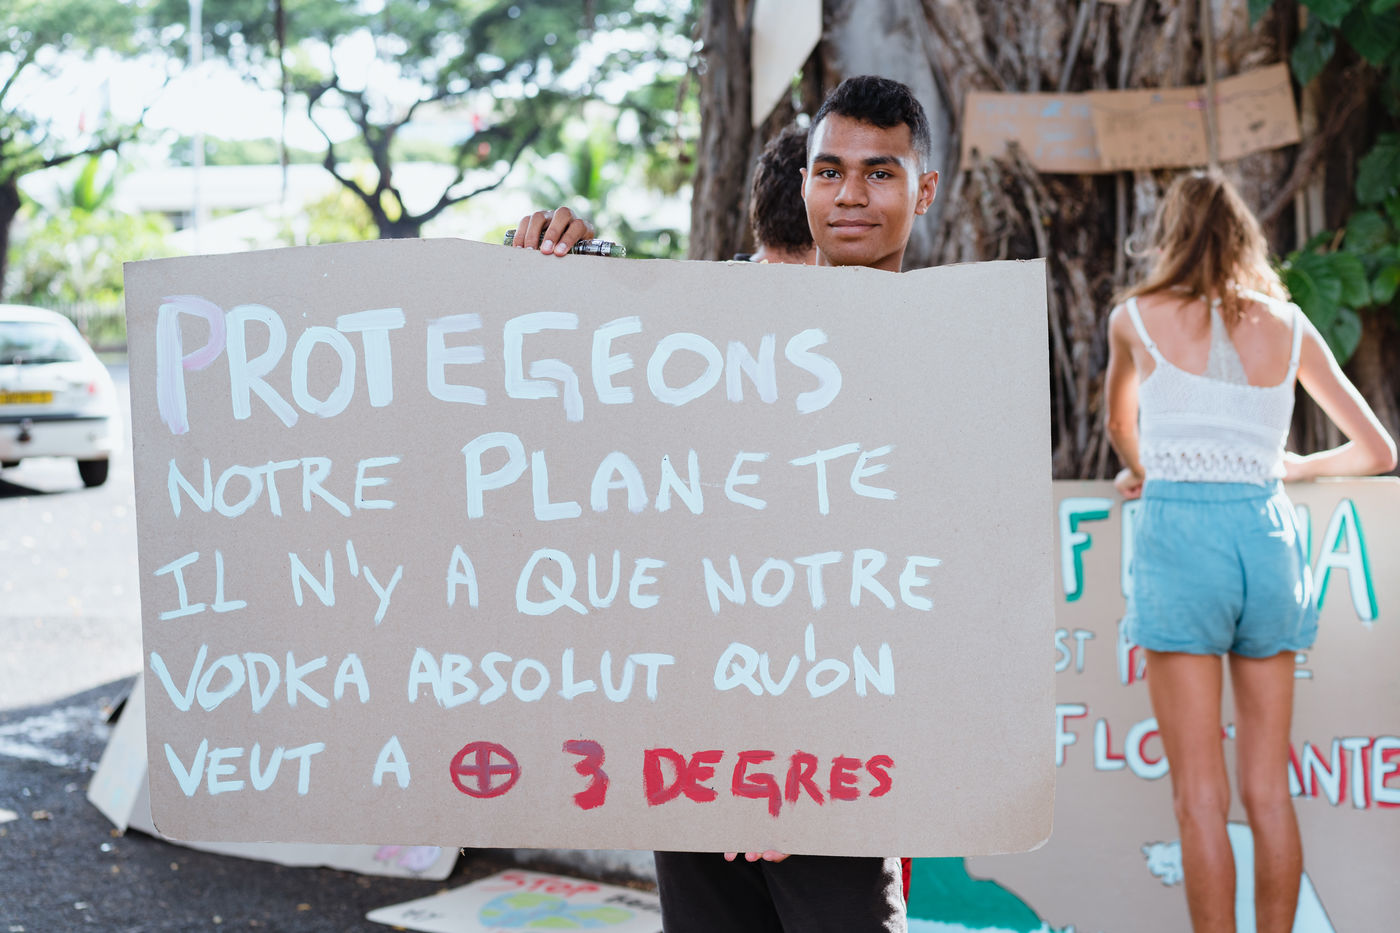 PROTEGEONS
NOTRE PLANETE
IL N'Y A QUE NOTRE
VODKA ABSOLUT QU'ON
VEUT A ⊕ 3 DEGRES
STOP